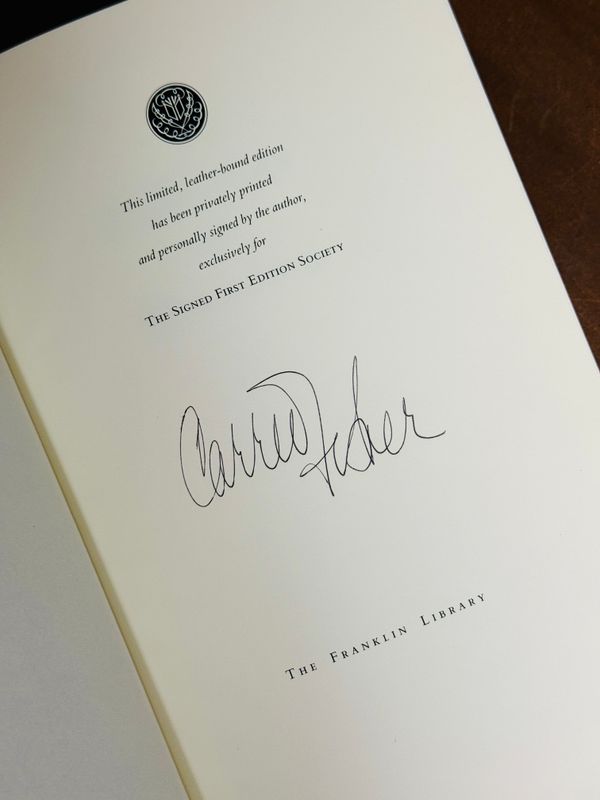 This limited, leather-bound edition
has been privately printed
and personally signed by the author,
exclusively for
The Signed First Edition Society
Carrie Fisher
The Franklin Library